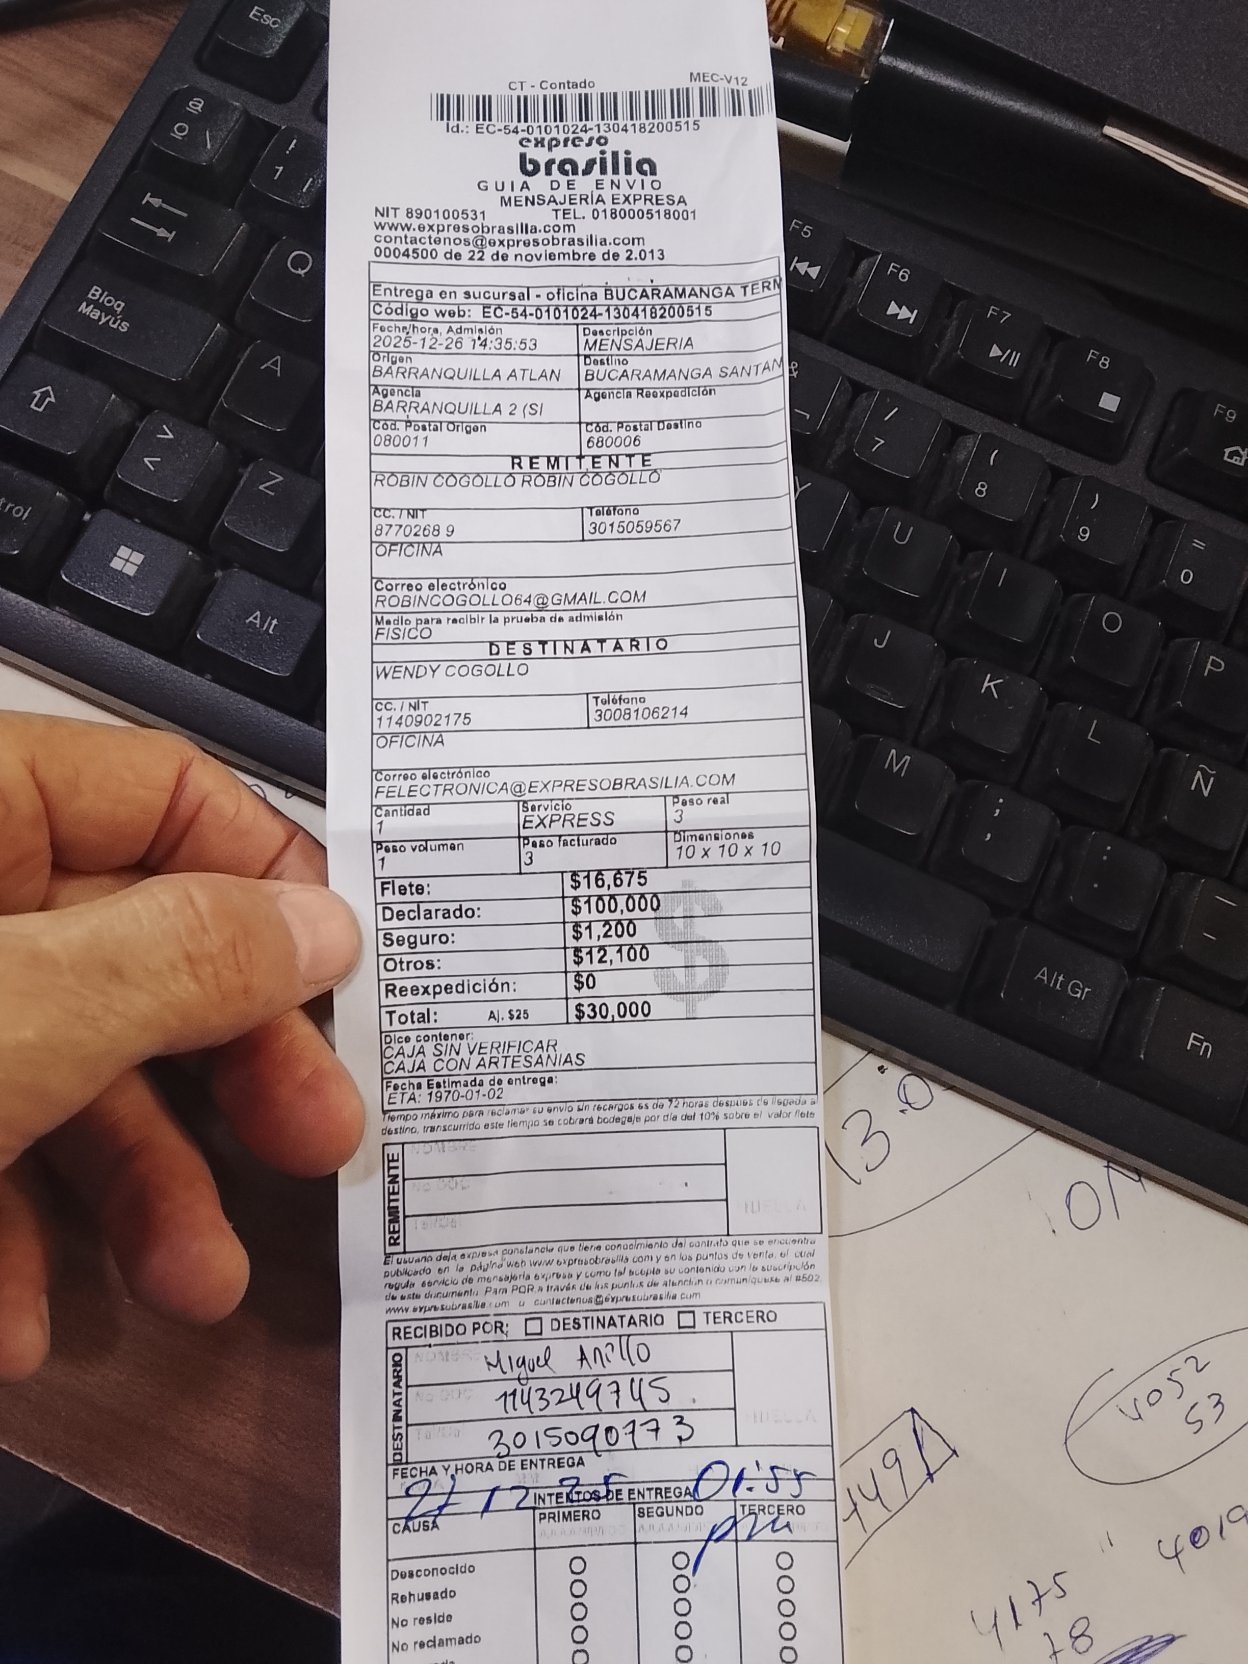 CT - Contado MEC-V12
Id.: EC-54-0101024-130418200515
expreso
brasilia
GUIA DE ENVIO
MENSAJERÍA EXPRESA
NIT 890100531 TEL. 018000518001
www.expresobrasilia.com
contactenos@expresobrasilia.com
0004500 de 22 de noviembre de 2.013
Entrega en sucursal - oficina BUCARAMANGA TERM
Código web: EC-54-0101024-130418200515
Fecha/hora, Admisión Descripción
2025-12-26 14:35:53 MENSAJERIA
Origen Destino
BARRANQUILLA ATLAN BUCARAMANGA SANTAN
Agencia Agencia Reexpedición
BARRANQUILLA 2 (SI
Cód. Postal Origen Cód. Postal Destino
080011 680006
REMITENTE
ROBIN COGOLLO ROBIN COGOLLO
CC. / NIT Teléfono
8770268 9 3015059567
OFICINA
Correo electrónico
ROBINCOGOLLO64@GMAIL.COM
Medio para recibir la prueba de admisión
FISICO
DESTINATARIO
WENDY COGOLLO
CC. / NIT Teléfono
1140902175 3008106214
OFICINA
Correo electrónico
FELECTRONICA@EXPRESOBRASILIA.COM
Cantidad Servicio Peso real
1 EXPRESS 3
Peso volumen Peso facturado Dimensiones
1 3 10 x 10 x 10
Flete: $16,675
Declarado: $100,000
Seguro: $1,200
Otros: $12,100
Reexpedición: $0
Total: Aj. $25 $30,000
Dice contener:
CAJA SIN VERIFICAR
CAJA CON ARTESANIAS
Fecha Estimada de entrega:
ETA: 1970-01-02
Tiempo máximo para reclamar su envío sin recargos es de 72 horas despues de llegada a
destino, transcurrido este tiempo se cobrará bodegaje por día del 10% sobre el valor flete
REMITENTE
NOMBRE
No DOC
Tel/Cel
HUELLA
El usuario deja expresa constancia que tiene conocimiento del contrato que se encuentra
publicado en la página web www.expresobrasilia.com y en los puntos de venta, el cual
regula servicio de mensajería expresa y como tal acepta su contenido con la suscripción
de este documento. Para PQR a través de los puntos de atención o comuníquese al #502.
www.expresobrasilia.com o contactenos@expresobrasilia.com
RECIBIDO POR: DESTINATARIO TERCERO
DESTINATARIO
NOMBRE Miguel Anillo
No DOC 1143249745
Tel/Cel 3015090773
HUELLA
FECHA Y HORA DE ENTREGA
12 25 01:55
pm
INTENTOS DE ENTREGA
CAUSA PRIMERO SEGUNDO TERCERO
Desconocido
Rehusado
No reside
No reclamado
Esc
ª
º \
!
1 |
Q
Bloq
Mayús
A
>
<
Z
trol
Alt
F5
F6
F7
F8
F9
&
/
7
(
8
)
9
=
0
Y
U
I
O
P
J
K
L
Ñ
M
;
,
:
.
_
-
Alt Gr
Fn
13.0
ION
4052
53
4491
4019
4175
78